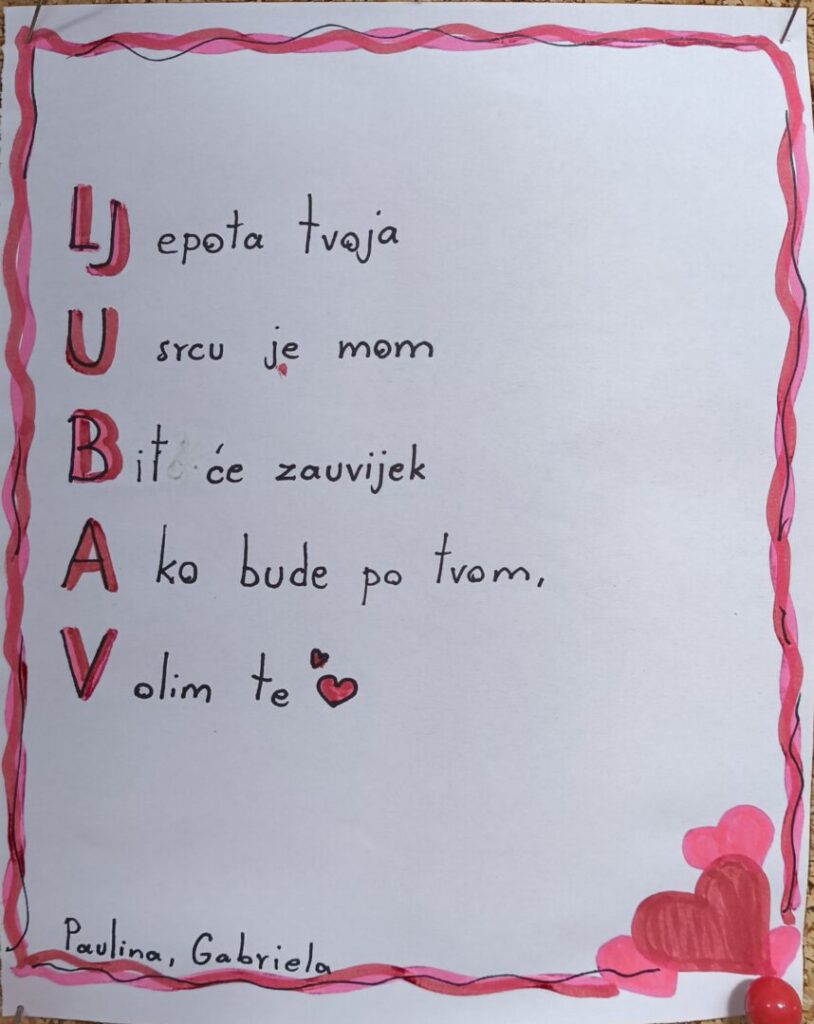 LJepota tvoja
U srcu je mom
Bit će zauvijek
Ako bude po tvom,
Volim te
Paulina, Gabriela